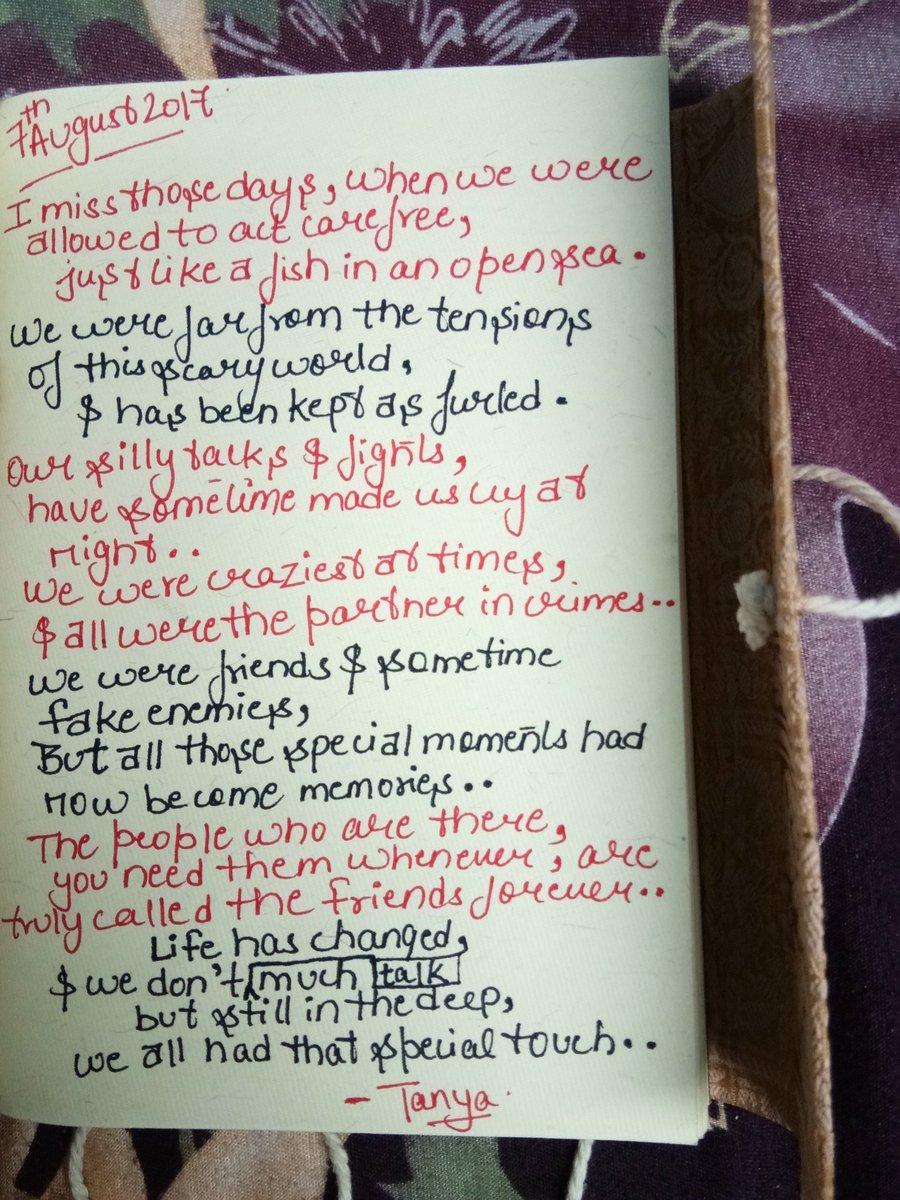 7th August 2017
I miss those days, when we were
allowed to act carefree,
just like a fish in an open sea.
We were far from the tensions
of this scary world,
& has been kept as furled.
Our silly talks & fights,
have sometime made us cry at
night..
We were craziest at times,
& all were the partner in crimes..
We were friends & sometime
fake enemies,
But all those special moments had
now become memories..
The people who are there,
you need them whenever, are
truly called the friends forever..
Life has changed,
& we don't much talk
but still in the deep,
we all had that special touch..
- Tanya.